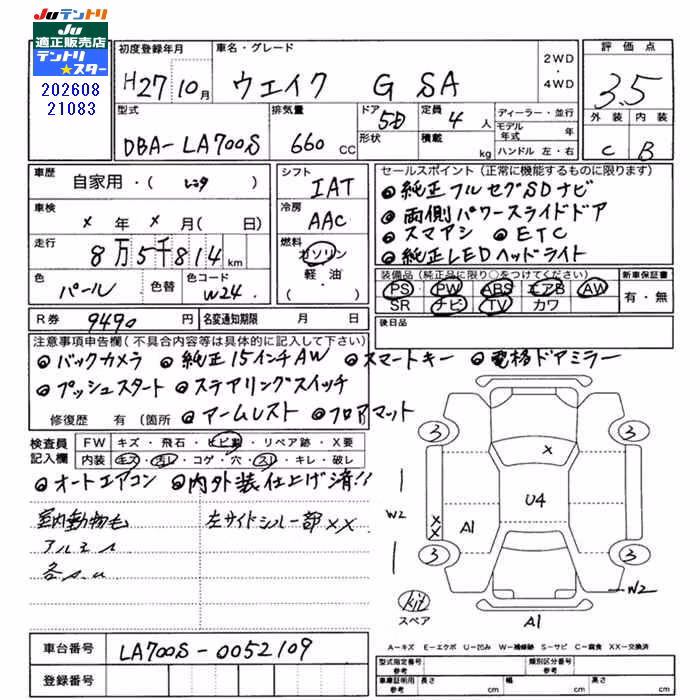 JUテントリ
JU
適正販売店
テントリ
★スター
202608
21083
初度登録年月 車名・グレード 2WD・4WD 評価点
H27 10月 ウエイク G SA 3.5
型式 排気量 ドア 5D 定員 4人 ディーラー・並行 外装 内装
DBA-LA700S 660 CC 形状 積載 kg モデル年式 年 C B
ハンドル 左・右
車歴 自家用・( レンタ ) シフト IAT セールスポイント(正常に機能するものに限ります)
車検 × 年 × 月( 日) 冷房 AAC ●純正フルセグSDナビ
●両側パワースライドドア
走行 8万5千814 km 燃料 ガソリン ●スマアシ ●ETC
軽油 ●純正LEDヘッドライト
色 パール 色替 色コード W24 装備品(純正品に限り○をつけてください) 新車保証書
PS PW ABS エアB AW 有・無
SR ナビ TV カワ
R券 9490 円 名変通知期限 月 日 後日品
注意事項申告欄(不具合内容等は具体的に記入して下さい)
●バックカメラ ●純正15インチAW ●スマートキー ●電格ドアミラー
●プッシュスタート ●ステアリングスイッチ
修復歴 有 (箇所 ●アームレスト ●フロアマット
検査員記入欄 FW キズ・飛石・ヒビ・リペア跡・X要
内装 キズ・汚レ・コゲ・穴・スレ・キレ・破レ
●オートエアコン ●内外装仕上げ済!!
室内動物毛 左サイドシル一部××
3 3
×
W2 ×× A1 U4
3 3
W2
kit
スペア A1
A=キズ E=エクボ U=凹み W=補修跡 S=サビ C=腐食 XX=交換済
車台番号 LA700S-0052109
型式指定番号 参考 類別区分番号 参考
登録番号
車庫証明用 参考 長さ cm 幅 cm 高さ cm